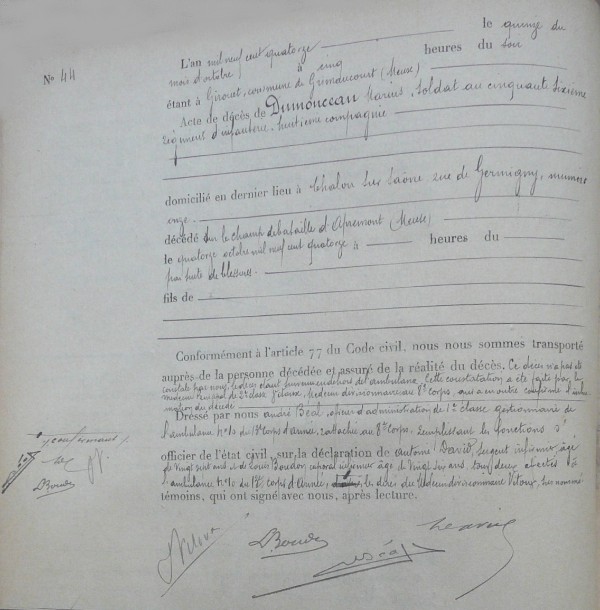 N° 44
L'an mil neuf cent quatorze le quinze du
mois d'octobre, à cinq heures du soir
étant à Girouet, commune de Grimaucourt (Meuse)
Acte de décès de Dumonceau Marius, soldat au cinquante sixième
régiment d'infanterie, huitième compagnie
domicilié en dernier lieu à Chalon sur Saône rue de Germigny, numéro
onze.
décédé sur le champ de bataille d'Apremont (Meuse)
le quatorze octobre mil neuf cent quatorze à heures du
par suite de blessures.
fils de
Conformément à l'article 77 du Code civil, nous nous sommes transporté
auprès de la personne décédée et assuré de la réalité du décès. Ce décès n'a pas été
constaté par nous, le décès étant survenu en dehors de l'ambulance. Cette constatation a été faite par le
médecin principal de 2e classe Viloux, médecin divisionnaire au 8e corps, qui a
du décédé
Dressé par nous André Béal, officier d'administration de 1e classe gestionnaire de
l'ambulance n° 10 du 13e corps d'armée, rattachée au 8e corps, remplissant les fonctions d'
officier de l'état civil, sur la déclaration de David, sergent infirmier âgé
de vingt sept ans et de Louis Bourdon, caporal infirmier âgé de vingt six ans, tous deux affectés à
l'ambulance n° 10 du 13e corps d'armée, les dires du médecin divisionnaire Viloux, sus nommé
témoins, qui ont signé avec nous, après lecture.